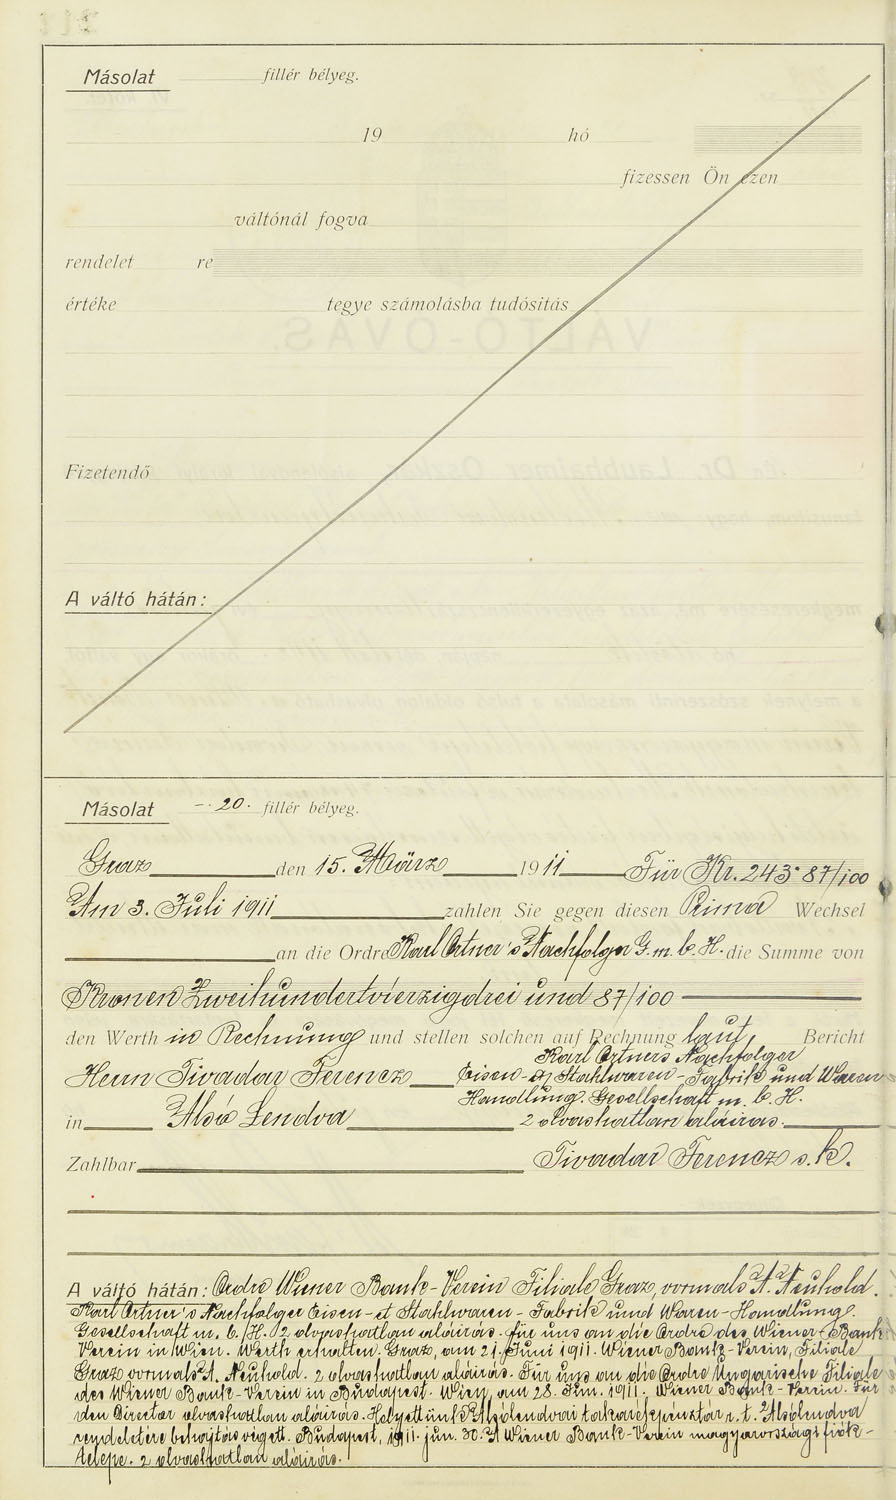 Másolat fillér bélyeg.
19 hó
fizessen Ön ezen
váltónál fogva
rendelet re
értéke tegye számolásba tudósitás
Fizetendő
A váltó hátán:
Másolat -·20· fillér bélyeg.
Graz den 15. März 1911 Für Kr. 243·87/100
Am 3. Juli 1911 zahlen Sie gegen diesen Prima Wechsel
an die Ordre Karl Ortner's Nachfolger G. m. b. H. die Summe von
Kronen Zweihundertvierzigdrei und 87/100
den Werth in Rechnung und stellen solchen auf Rechnung laut Bericht
Karl Ortners Nachfolger
Herrn Tivadar Ferencz Eisen- et Stahlwaren- Fabrik und Waren
Handlung. Gesellschaft m. b. H.
in Alsó Lendva 2 olvashatlan aláirás.
Zahlbar Tivadar Ferencz s. k.
A váltó hátán: Ordre Wiener Bank-Verein Filiale Graz, vormals A. Neuhold.
Karl Ortner's Nachfolger Eisen- et Stahlwaren- Fabrik und Waren-Handlung.
Gesellschaft m. b. H. 2 olvashatlan aláirás. für uns an die Ordre des Wiener Bank-
Verein in Wien. Werth erhalten. Graz, am 21. Juni 1911. Wiener Bank-Verein, Filiale
Graz vormals A. Neuhold. 2 olvashatlan aláirás. Für uns an die Ordre Ungarische Filiale
des Wiener Bank-Verein in Budapest. Wien, am 28. Jun. 1911. Wiener Bank-Verein. Für
den Director olvashatlan aláirás. Helyettünk Alsólendvai takarékpénztár r. t. Alsólendva
rendeletére behajtás végett. Budapest, 1911. jun. 30. A Wiener Bank-Verein magyarországi fiók-
telepe. 2 olvashatlan aláirás.